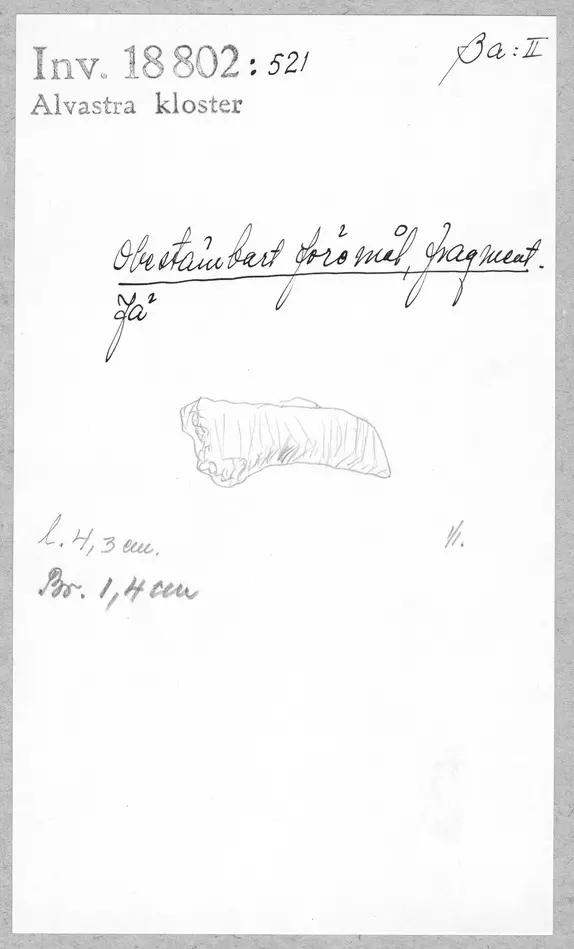 Inv. 18802:521
Ba:II
Alvastra kloster
Obestämbart föremål, fragment.
Jä
l. 4,3 cm.
1/1.
Br. 1,4 cm